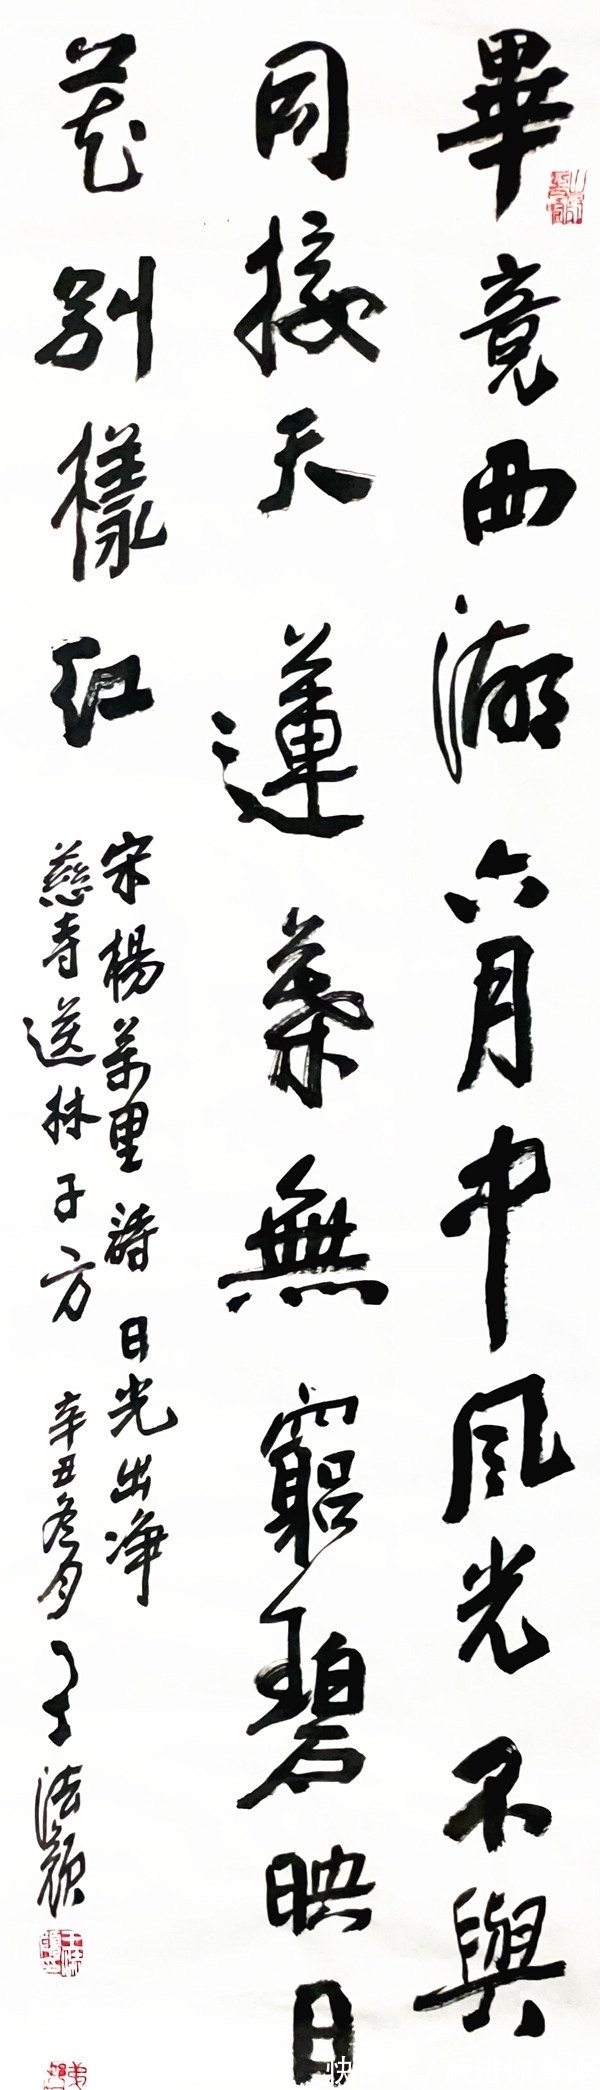 畢竟西湖六月中風光不與
同接天蓮葉無窮碧映日
花別樣紅
宋楊萬里詩日光出净
慈寺送林子方 辛丑冬月 法